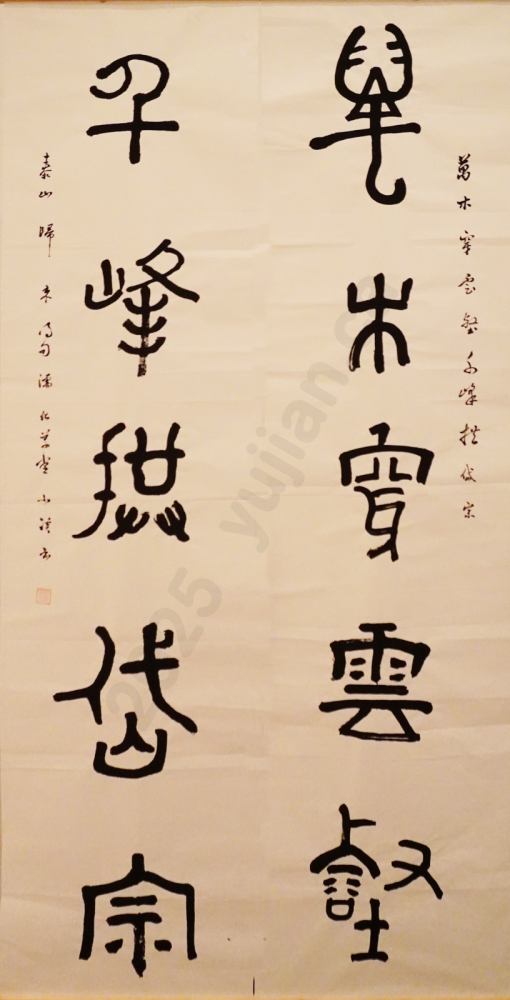 萬木穿雲壑千峰拱岱宗
萬木穿雲壑
千峰拱岱宗
泰山歸來得句
2025 yujian.c